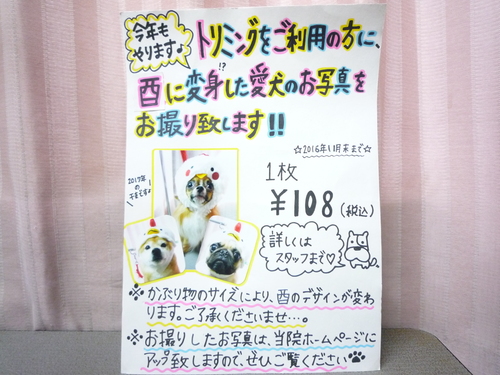 今年も
やります♪
トリミングをご利用の方に、
酉に変身!?した愛犬のお写真を
お撮り致します!!
☆2016年11月末まで☆
2017年
の
干支です♪
1枚
¥108(税込)
詳しくは
スタッフまで♡
※かぶり物のサイズにより、酉のデザインが変わ
ります。ご了承くださいませ…。
※お撮りしたお写真は、当院ホームページに
アップ致しますので、ぜひご覧ください